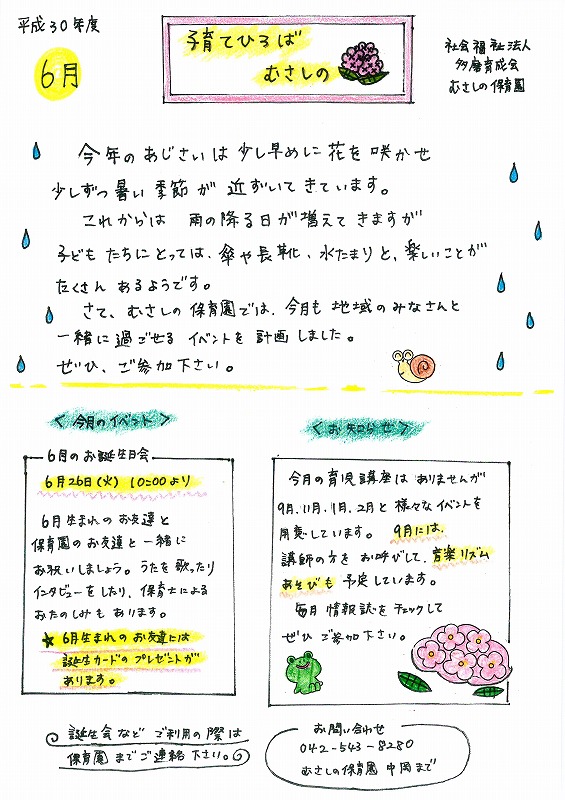 平成30年度
6月
子育てひろば
むさしの
社会福祉法人
多磨育成会
むさしの保育園
今年のあじさいは少し早めに花を咲かせ
少しずつ暑い季節が近ずいてきています。
これからは 雨の降る日が増えてきますが
子どもたちにとっては、傘や長靴、水たまりと、楽しいことが
たくさんあるようです。
さて、むさしの保育園では、今月も地域のみなさんと
一緒に過ごせるイベントを計画しました。
ぜひ、ご参加下さい。
＜今月のイベント＞
6月のお誕生日会
6月26日(火) 10:00より
6月生まれのお友達と
保育園のお友達と一緒に
お祝いしましょう。うたを歌ったり
インタビューをしたり、保育士による
おたのしみもあります。
★6月生まれのお友達には
誕生カードのプレゼントが
あります。
＜お知らせ＞
今月の育児講座はありませんが
9月、11月、1月、2月と様々なイベントを
用意しています。9月には、
講師の方をお呼びして、音楽リズム
あそびも予定しています。
毎月情報誌をチェックして
ぜひご参加下さい。
誕生会など ご利用の際は
保育園までご連絡下さい。
お問い合わせ
042-543-8280
むさしの保育園 中岡まで